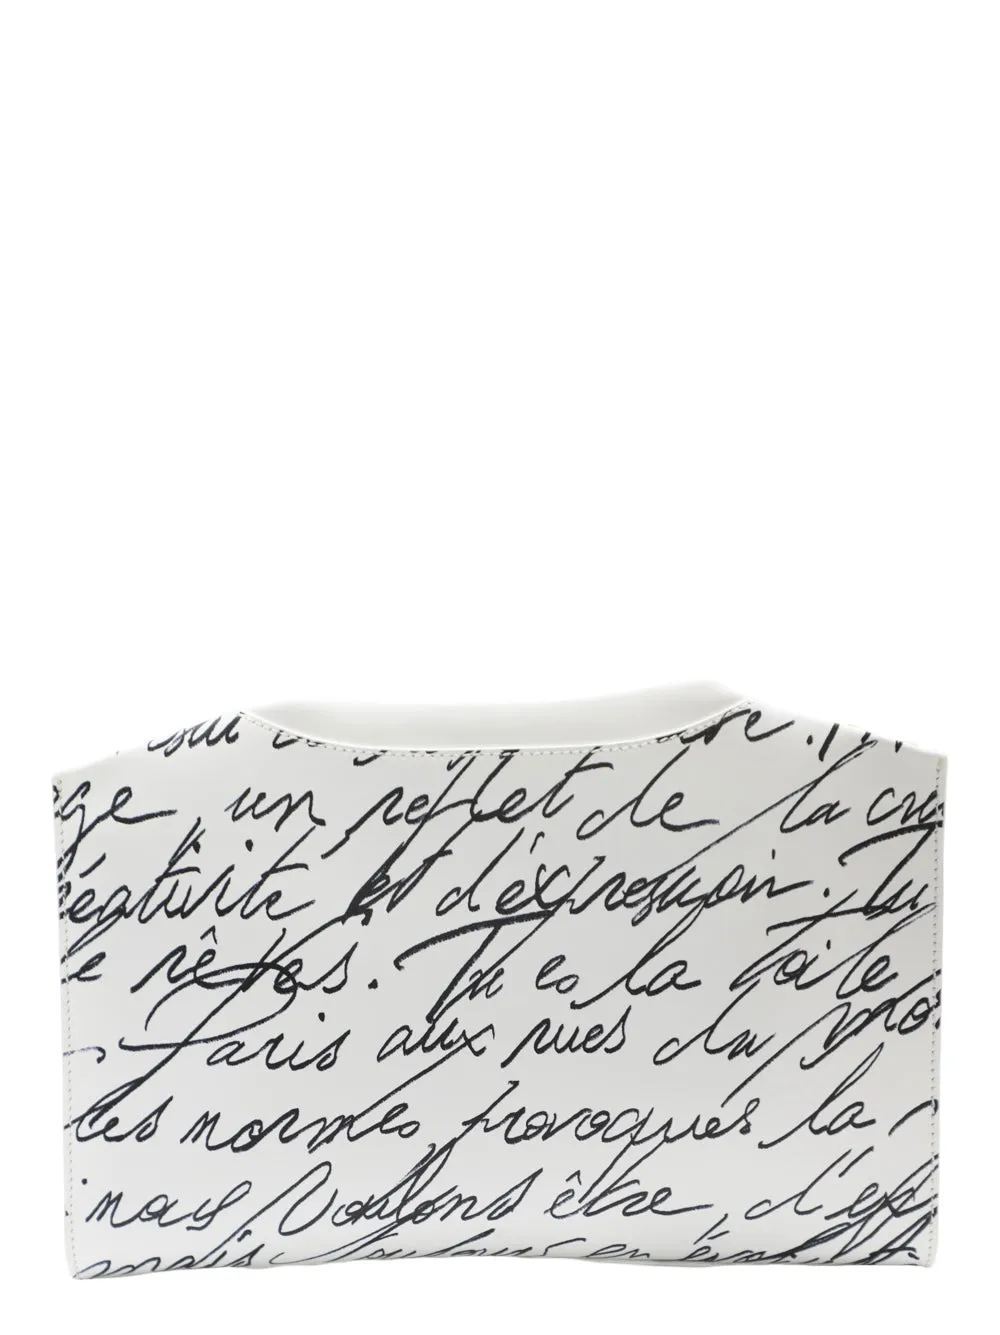 sur
ge, un reflet de la cré
éativité et d'expression. Tu
e rêves. Tu es la toile
Paris aux rues du mo
les normes, provoques la
nous voulons être, d'ex
mais toujours en évol